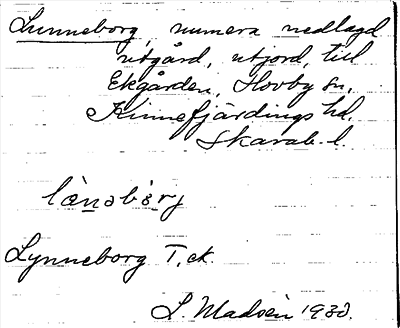 Lunneborg, numera nedlagd
utgård, utjord, till
Ekgården, Hovby sn,
Kinnefjärdings hd.
Skarab. l.
lo̤nəbärj
Lynneborg T. ek.
L. Madsén 1930.